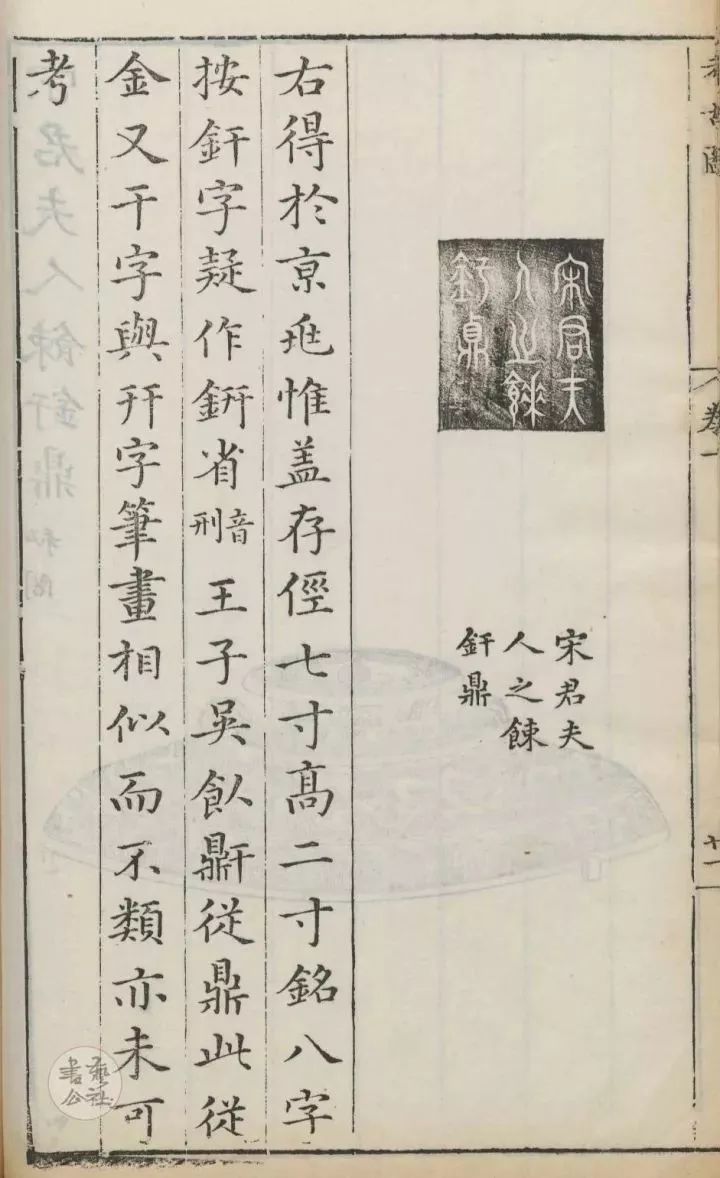 考古圖
卷一
廿一
宋君夫
人之餗
釬鼎
宋君夫
人之餗
釬鼎
右得於京兆惟盖存徑七寸高二寸銘八字
按釬字疑作鈃省音刑王子吳飤鼾從鼎此從
金又干字與幵字筆畫相似而不類亦未可
考
書藝公社